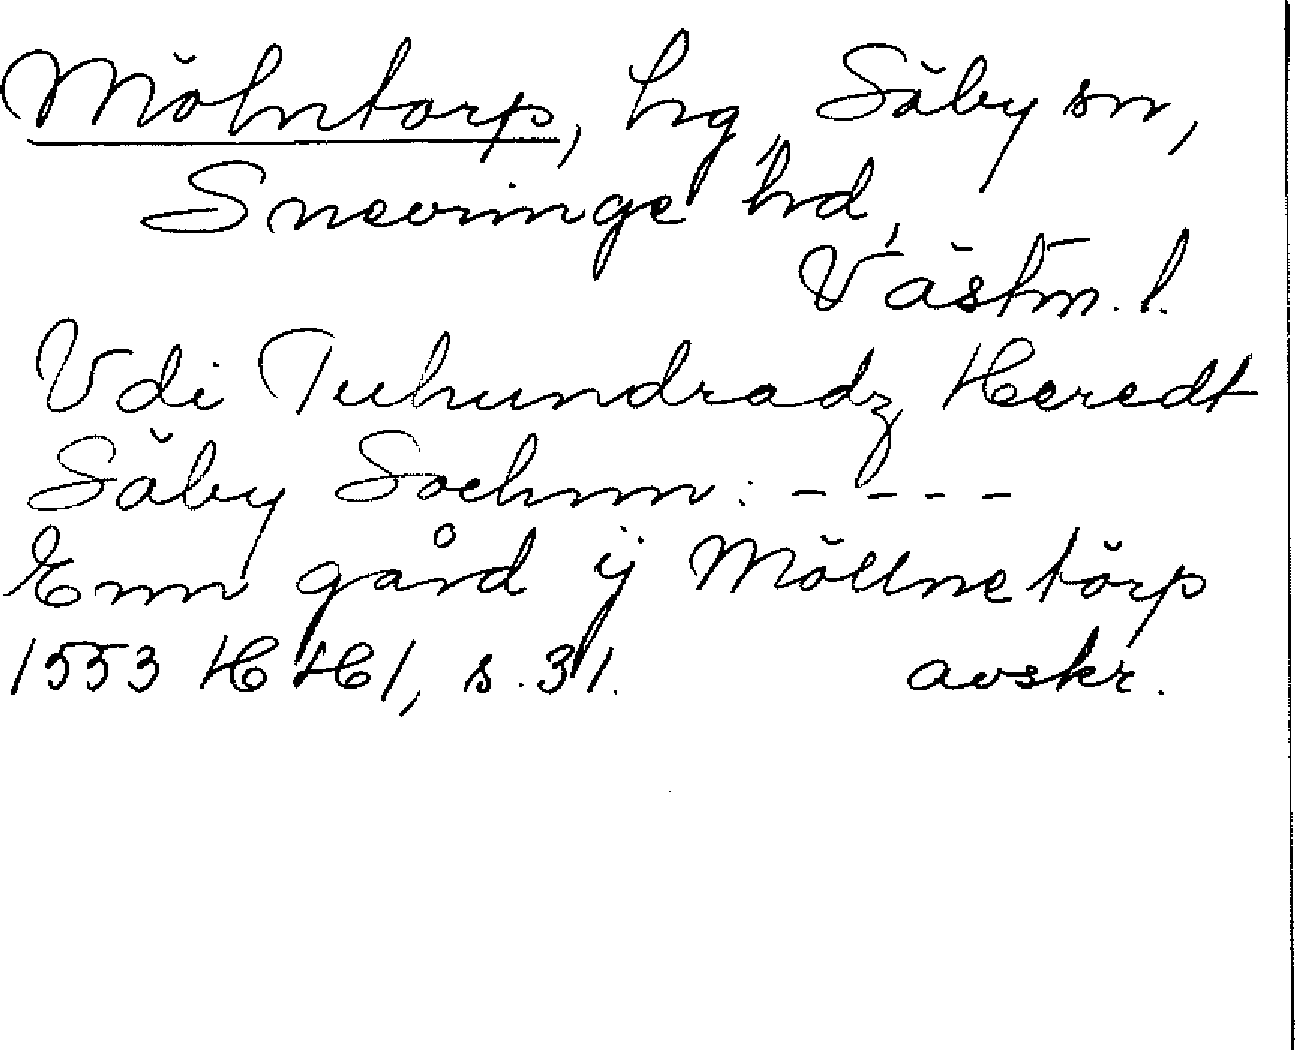 Mölntorp, hg, Säby sn,
Snevringe hd,
Västm. l.
Vdi Tuhundradz Heredt
Säby Sochnn: - - - -
Enn gård ij Möllnetörp
1553 HH1, s. 31. avskr.